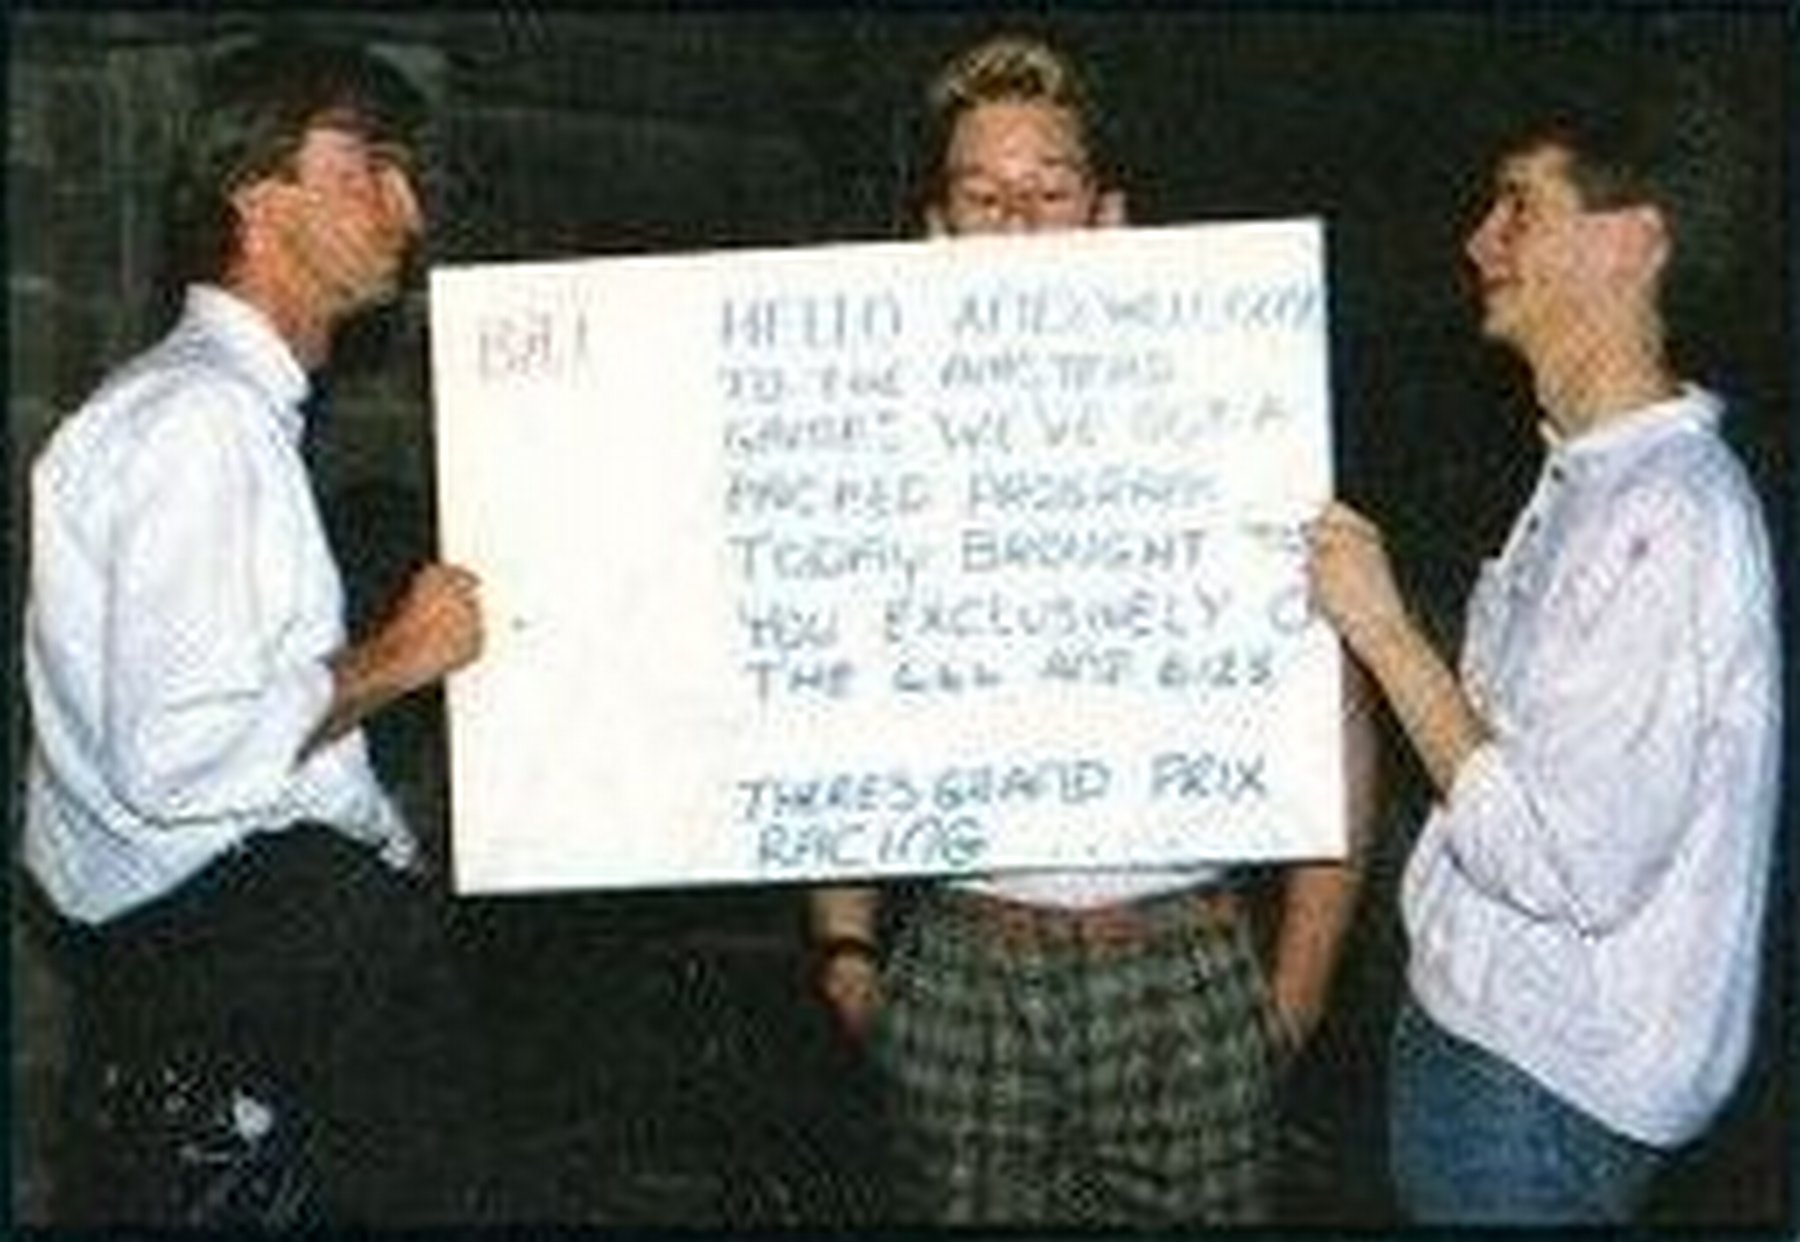 HELLO AND WELCOM
TO THE AMSTRAD
GAMES WE'VE GOT A
PACKED PROGRAM
TODAY BROUGHT TO
YOU EXCLUSIVELY O
THE 464 AND 6128
THERES GRAND PRIX
RACING